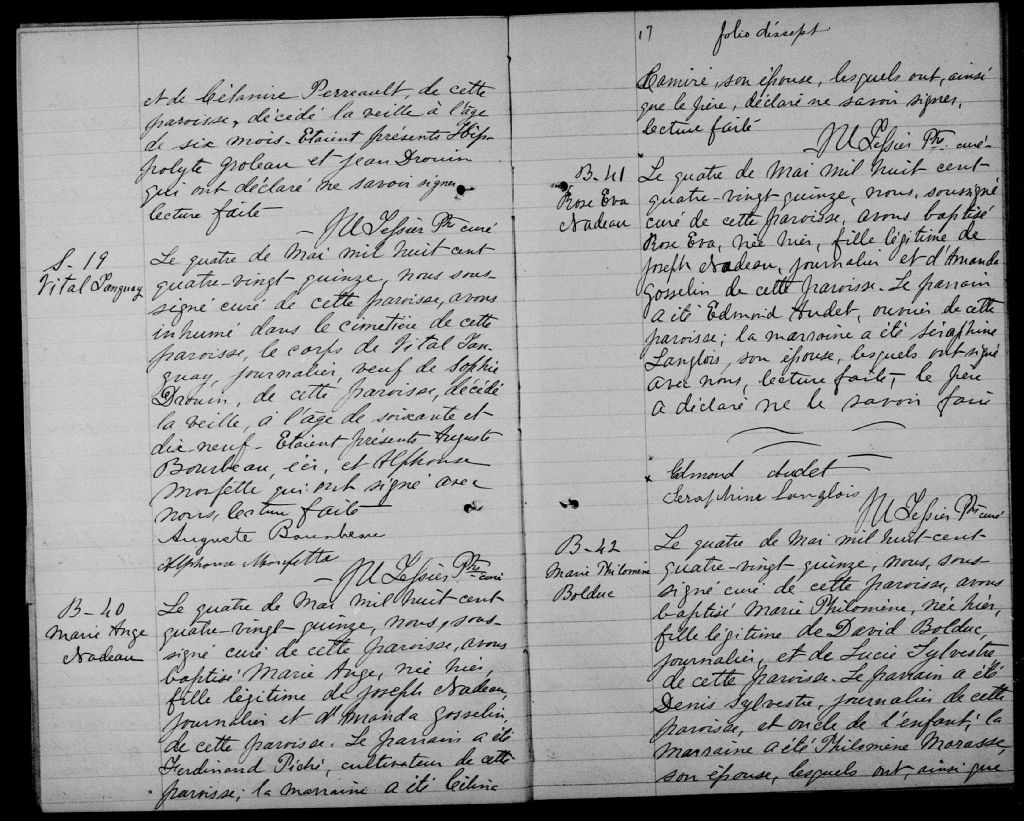 et de Célanire Perreault, de cette
paroisse, décédé la veille à l'âge
de six mois. Etaient présents Hip-
polyte Groleau et Jean Drouin
qui ont déclaré ne savoir signer
lecture faite
JU Tessier Ptre curé
S. 19
Vital Tanguay
Le quatre de Mai mil huit cent
quatre-vingt quinze, nous sous-
signé curé de cette paroisse, avons
inhumé dans le cimetière de cette
paroisse, le corps de Vital Tan-
guay, journalier, veuf de Sophie
Drouin, de cette paroisse, décédé
la veille, à l'âge de soixante et
dix-neuf. Etaient présents Auguste
Bourbeau, éci, et Alphonse
Morfette qui ont signé avec
nous, lecture faite
Auguste Bourbeau
Alphonse Morfette
JU Tessier Ptre curé
B-40
Marie Ange
Nadeau
Le quatre de Mai mil huit cent
quatre-vingt quinze, nous, sous-
signé curé de cette paroisse, avons
baptisé Marie Ange, née hier,
fille légitime de Joseph Nadeau,
journalier et d'Amanda Gosselin,
de cette paroisse. Le parrain a été
Ferdinand Piché, cultivateur de cette
paroisse; la marraine a été Célina
17 folio dissept
Ramiré, son épouse, lesquels ont, ainsi
que le père, déclaré ne savoir signer,
lecture faite
JU Tessier Ptre curé
B-41
Rose Eva
Nadeau
Le quatre de Mai mil huit cent
quatre-vingt quinze, nous, soussigné
curé de cette paroisse, avons baptisé
Rose Eva, née hier, fille légitime de
Joseph Nadeau, journalier et d'Amanda
Gosselin de cette paroisse. Le parrain
a été Edmond Audet, ouvrier de cette
paroisse; la marraine a été Séraphine
Langlois, son épouse, lesquels ont signé
avec nous, lecture faite, le père
a déclaré ne le savoir faire
Edmond Audet
Seraphine Langlois
JU Tessier Ptre curé
B-42
Marie Philomène
Bolduc
Le quatre de Mai mil huit-cent-
quatre-vingt quinze, nous, sous-
signé curé de cette paroisse, avons
baptisé Marie Philomène, née hier,
fille légitime de David Bolduc,
journalier, et de Lucie Sylvestre
de cette paroisse. Le parrain a été
Denis Sylvestre, journalier de cette
paroisse, et oncle de l'enfant; la
marraine a été Philomène Marasse,
son épouse, lesquels ont, ainsi que